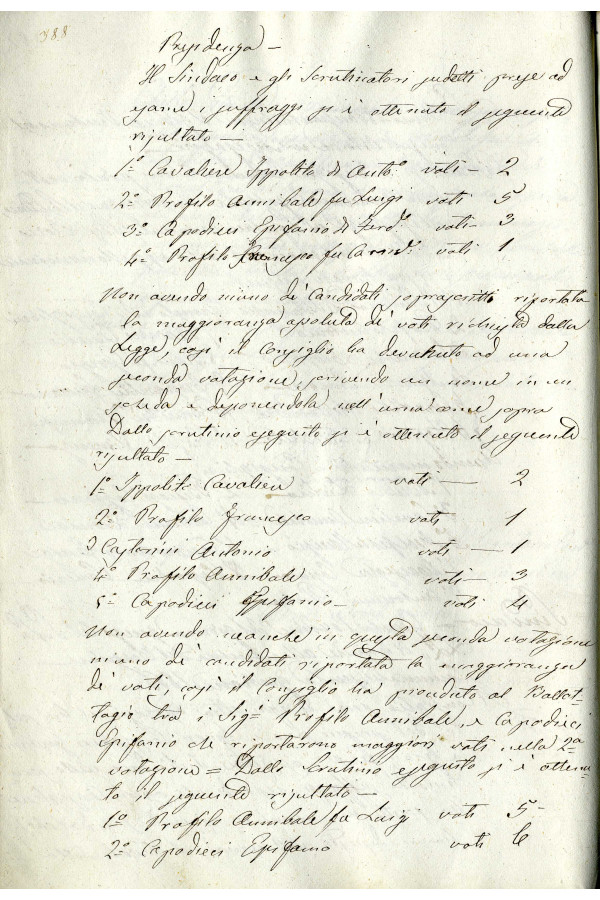 388
Presidenza —
Il Sindaco e gli Scrutinatori sudetti prese ad
esame i suffraggi si è ottenuto il seguente
risultato —
1º Cavaliere Ippolito di Antº voti — 2
2º Profilo Annibale fu Luigi voti 5
3º Capodieci Epifanio di Ferdº voti — 3
4º Profilo Francesco fu Carmº voti 1
Non avendo niuno de' Candidati soprascritti riportata
la maggioranza assoluta de' voti richiesta dalla
Legge, così il Consiglio ha devenuto ad una
seconda votazione, scrivendo un nome in un
scheda e deponendola nell'urna come sopra
Dallo scrutinio eseguito si è ottenuto il seguente
risultato —
1º Ippolito Cavaliere voti — 2
2º Profilo Francesco voti 1
3 Antonio voti — 1
4º Profilo Annibale voti — 3
5º Capodieci Epifanio — voti 4
Non avendo neanche in questa seconda votazione
niuno de' candidati riportata la maggioranza
de' voti, così il Consiglio ha proceduto al Ballot-
tagio tra i Sigⁱ Profilo Annibale, e Capodieci
Epifanio che riportarono maggiori voti nella 2ª
votazione = Dallo Scrutinio eseguito si è ottenu-
to il seguente risultato —
1º Profilo Annibale fu Luigi voti 5 -
2º Capodieci Epifanio voti 6